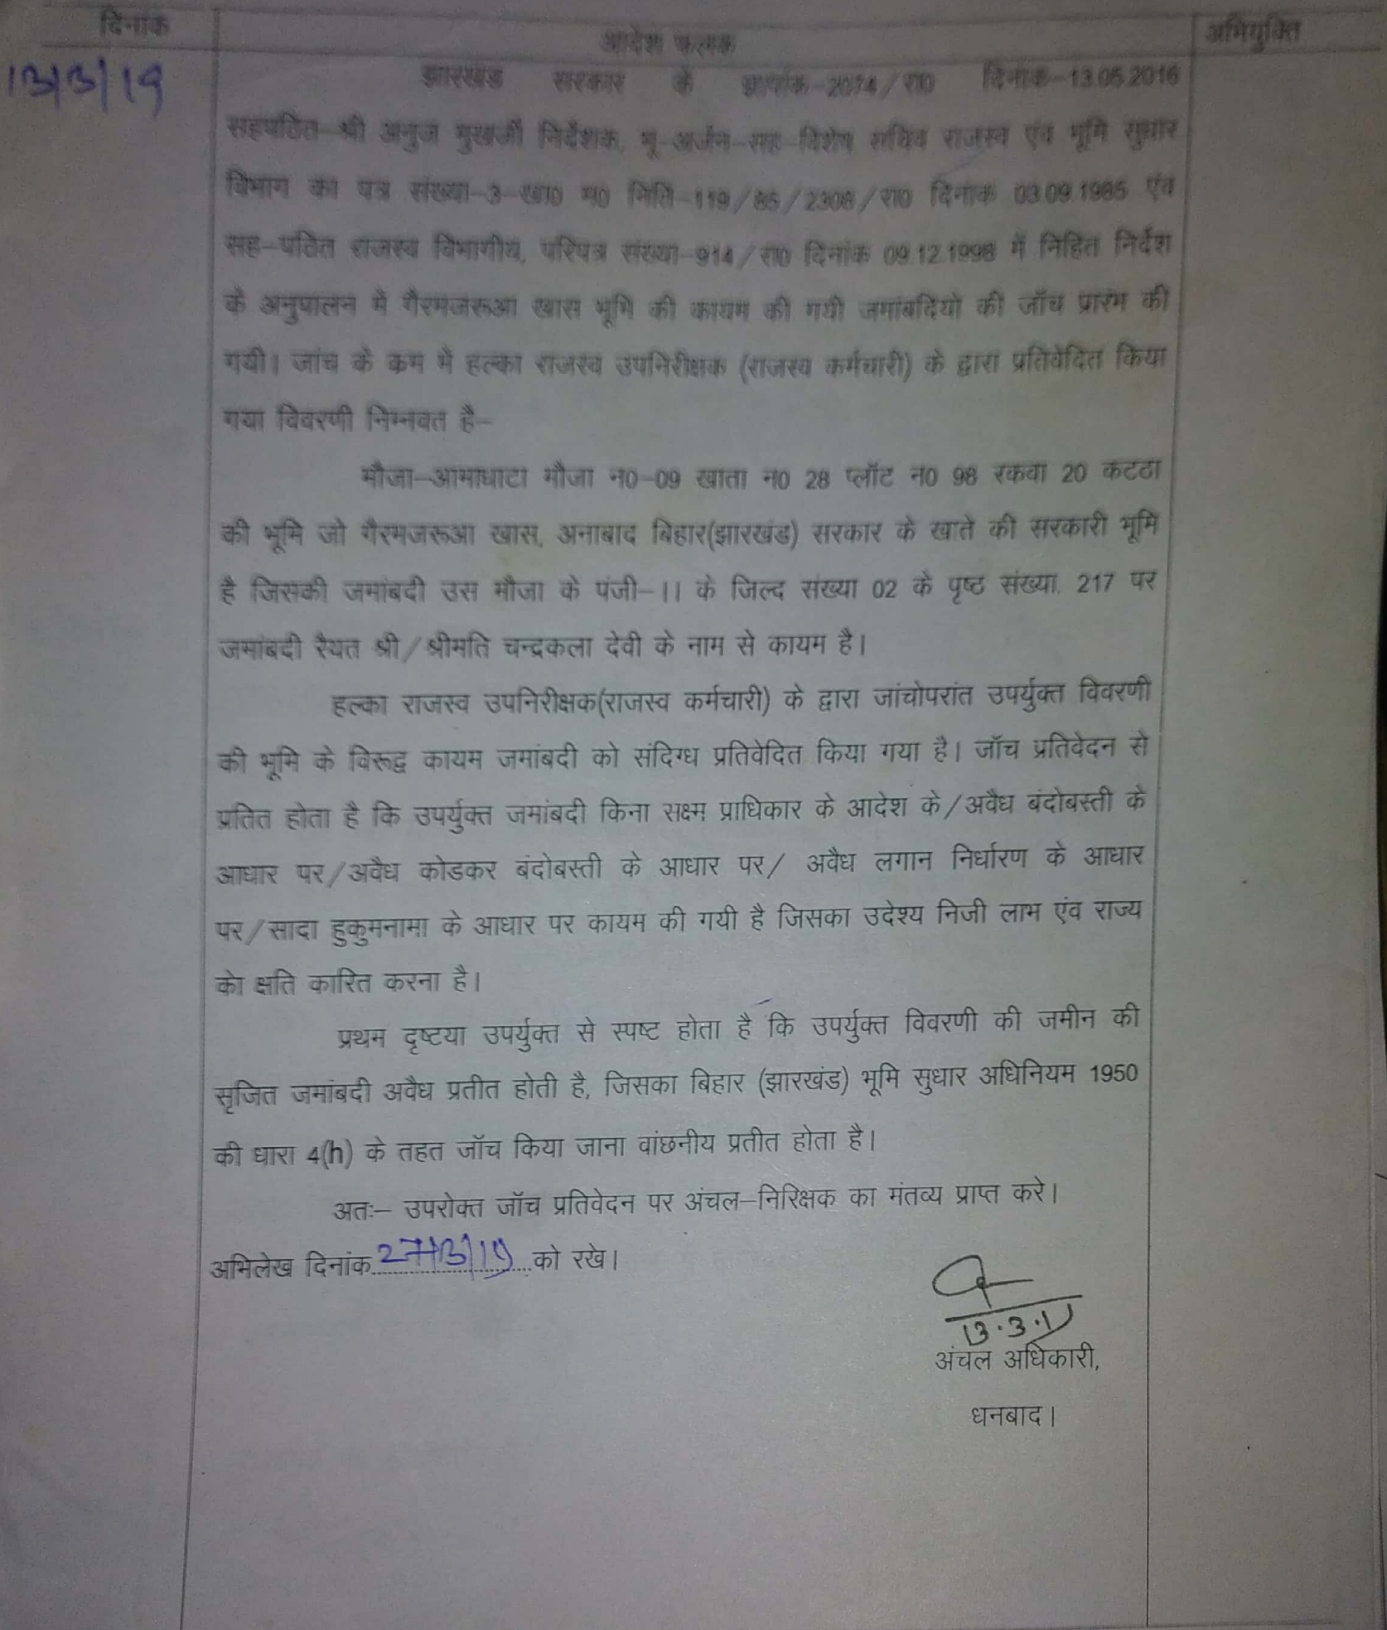 दिनांक
आदेश फलक
अभियुक्ति
13/3/19
झारखंड सरकार के ज्ञापांक-2074/रा0 दिनांक-13.05.2016
सहपठित-श्री अनुज मुखर्जी निर्देशक, भू-अर्जन-सह-विशेष सचिव राजस्व एंव भूमि सुधार
विभाग का पत्र संख्या-3-खा0 म0 निति-119/85/2308/रा0 दिनांक 03.09.1985 एंव
सह-पठित राजस्व विभागीय, परिपत्र संख्या-914/रा0 दिनांक 09.12.1998 में निहित निर्देश
के अनुपालन मे गैरमजरूआ खास भूमि की कायम की गयी जमांबदियो की जॉच प्रारंभ की
गयी। जांच के कम में हल्का राजस्व उपनिरीक्षक (राजस्व कर्मचारी) के द्वारा प्रतिवेदित किया
गया विवरणी निम्नवत है-
मौजा-आमाघाटा मौजा न0-09 खाता न0 28 प्लॉट न0 98 रकवा 20 कटठा
की भूमि जो गैरमजरूआ खास, अनाबाद बिहार(झारखंड) सरकार के खाते की सरकारी भूमि
है जिसकी जमांबदी उस मौजा के पंजी-।। के जिल्द संख्या 02 के पृष्ठ संख्या. 217 पर
जमांबदी रैयत श्री/श्रीमति चन्द्रकला देवी के नाम से कायम है।
हल्का राजस्व उपनिरीक्षक(राजस्व कर्मचारी) के द्वारा जांचोपरांत उपर्युक्त विवरणी
की भूमि के विरूद्व कायम जमांबदी को संदिग्ध प्रतिवेदित किया गया है। जॉच प्रतिवेदन से
प्रतित होता है कि उपर्युक्त जमांबदी किना सक्ष्म प्राधिकार के आदेश के/अवैध बंदोबस्ती के
आधार पर/अवैध कोडकर बंदोबस्ती के आधार पर/ अवैध लगान निर्धारण के आधार
पर/सादा हुकुमनामा के आधार पर कायम की गयी है जिसका उदेश्य निजी लाभ एंव राज्य
को क्षति कारित करना है।
प्रथम दृष्टया उपर्युक्त से स्पष्ट होता है कि उपर्युक्त विवरणी की जमीन की
सृजित जमांबदी अवैध प्रतीत होती है, जिसका बिहार (झारखंड) भूमि सुधार अधिनियम 1950
की धारा 4(h) के तहत जॉच किया जाना वांछनीय प्रतीत होता है।
अतः- उपरोक्त जॉच प्रतिवेदन पर अंचल-निरिक्षक का मंतव्य प्राप्त करे।
अभिलेख दिनांक 27/3/19 को रखे।
13.3.19
अंचल अधिकारी,
धनबाद।